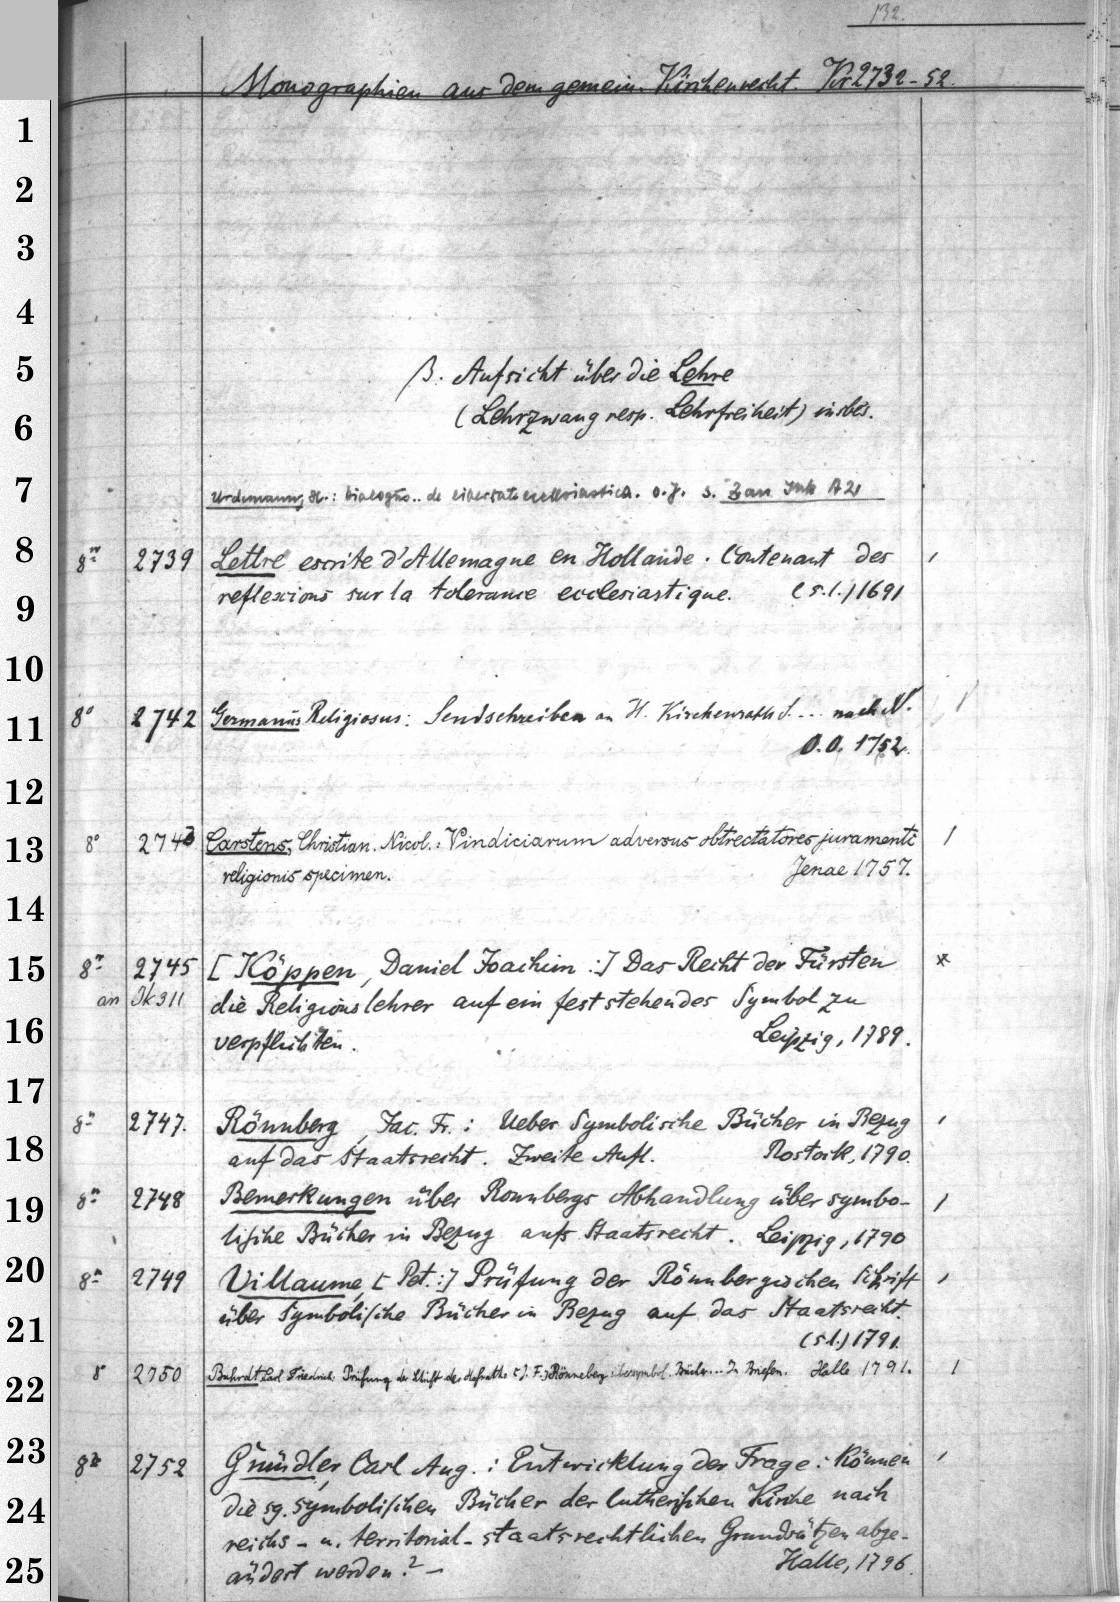 132.
Monographien aus dem gemein. Kirchenrecht. Kr2732-52
1
2
3
4
5 β. Aufsicht über die Lehre
6 (Lehrzwang resp. Lehrfreiheit) insbes.
7 Urdemann, H.: de libertate ecclesiastica. o.J. s. Zan Ink A 21
8 8° 2739 Lettre escrite d'Allemagne en Hollande. Contenant des
9 reflexions sur la tolerance ecclesiastique. (s.l.) 1691
10
11 8° 2742 Germanus Religiosus: Sendschreiben an H. Kirchenrath S.... nach N.
O.O. 1752.
12
13 8° 2743 Carstens, Christian. Nicol.: Vindiciarum adversus obtrectatores juramenti
religionis specimen. Jenae 1757.
14
15 8° 2745 [Köppen, Daniel Joachim:] Das Recht der Fürsten *
an Ik 311 die Religionslehrer auf ein feststehendes Symbol zu
16 verpflichten. Leipzig, 1789.
17
8° 2747. Rönnberg, Jac. Fr.: Ueber Symbolische Bücher in Bezug
18 auf das Staatsrecht. Zweite Aufl. Rostock, 1790.
19 8° 2748 Bemerkungen über Ronnbergs Abhandlung über symbo-
lische Bücher in Bezug aufs Staatsrecht. Leipzig, 1790
20 8° 2749 Villaume, [Pet.:] Prüfung der Rönnbergischen Schrift
21 über Symbolische Bücher in Bezug auf das Staatsrecht.
(s.l.) 1791.
22 8 2750 Bahrdt, Carl Friedrich: Prüfung der Schrift des Hofraths [J. F.] Rönneberg über symbol. Bücher... In Briefen. Halle 1791.
23 8° 2752 Gründler, Carl Aug.: Entwicklung der Frage: Können
24 die sg. symbolischen Bücher der lutherischen Kirche nach
reichs- u. territorial-staatsrechtlichen Grundsätzen abge-
25 ändert werden? – Halle, 1796.